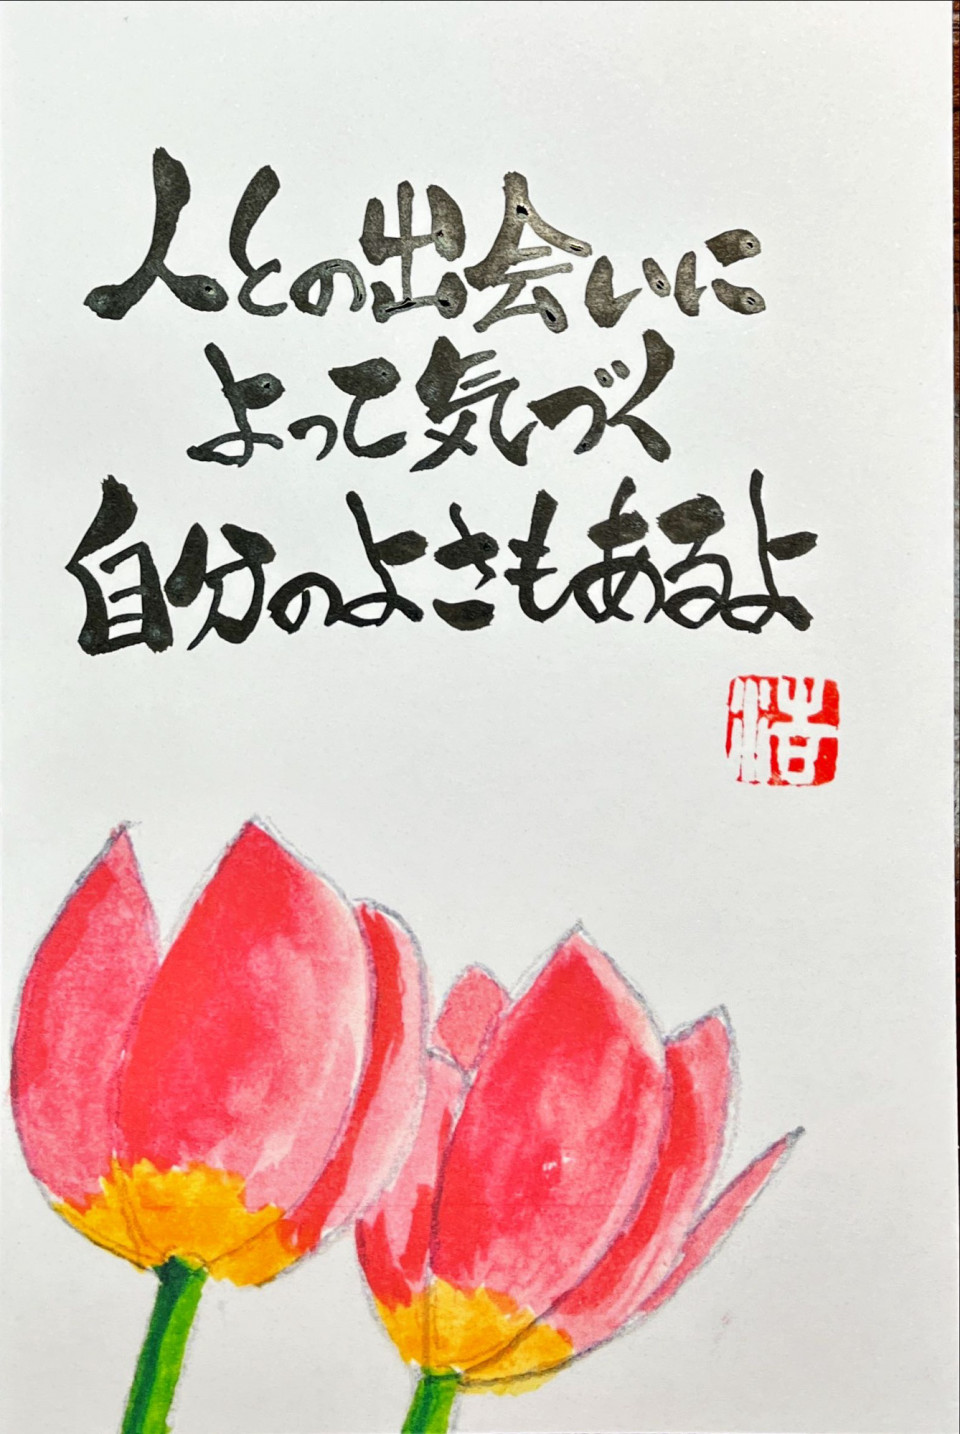 人との出会いに
よって気づく
自分のよさもあるよ
浩